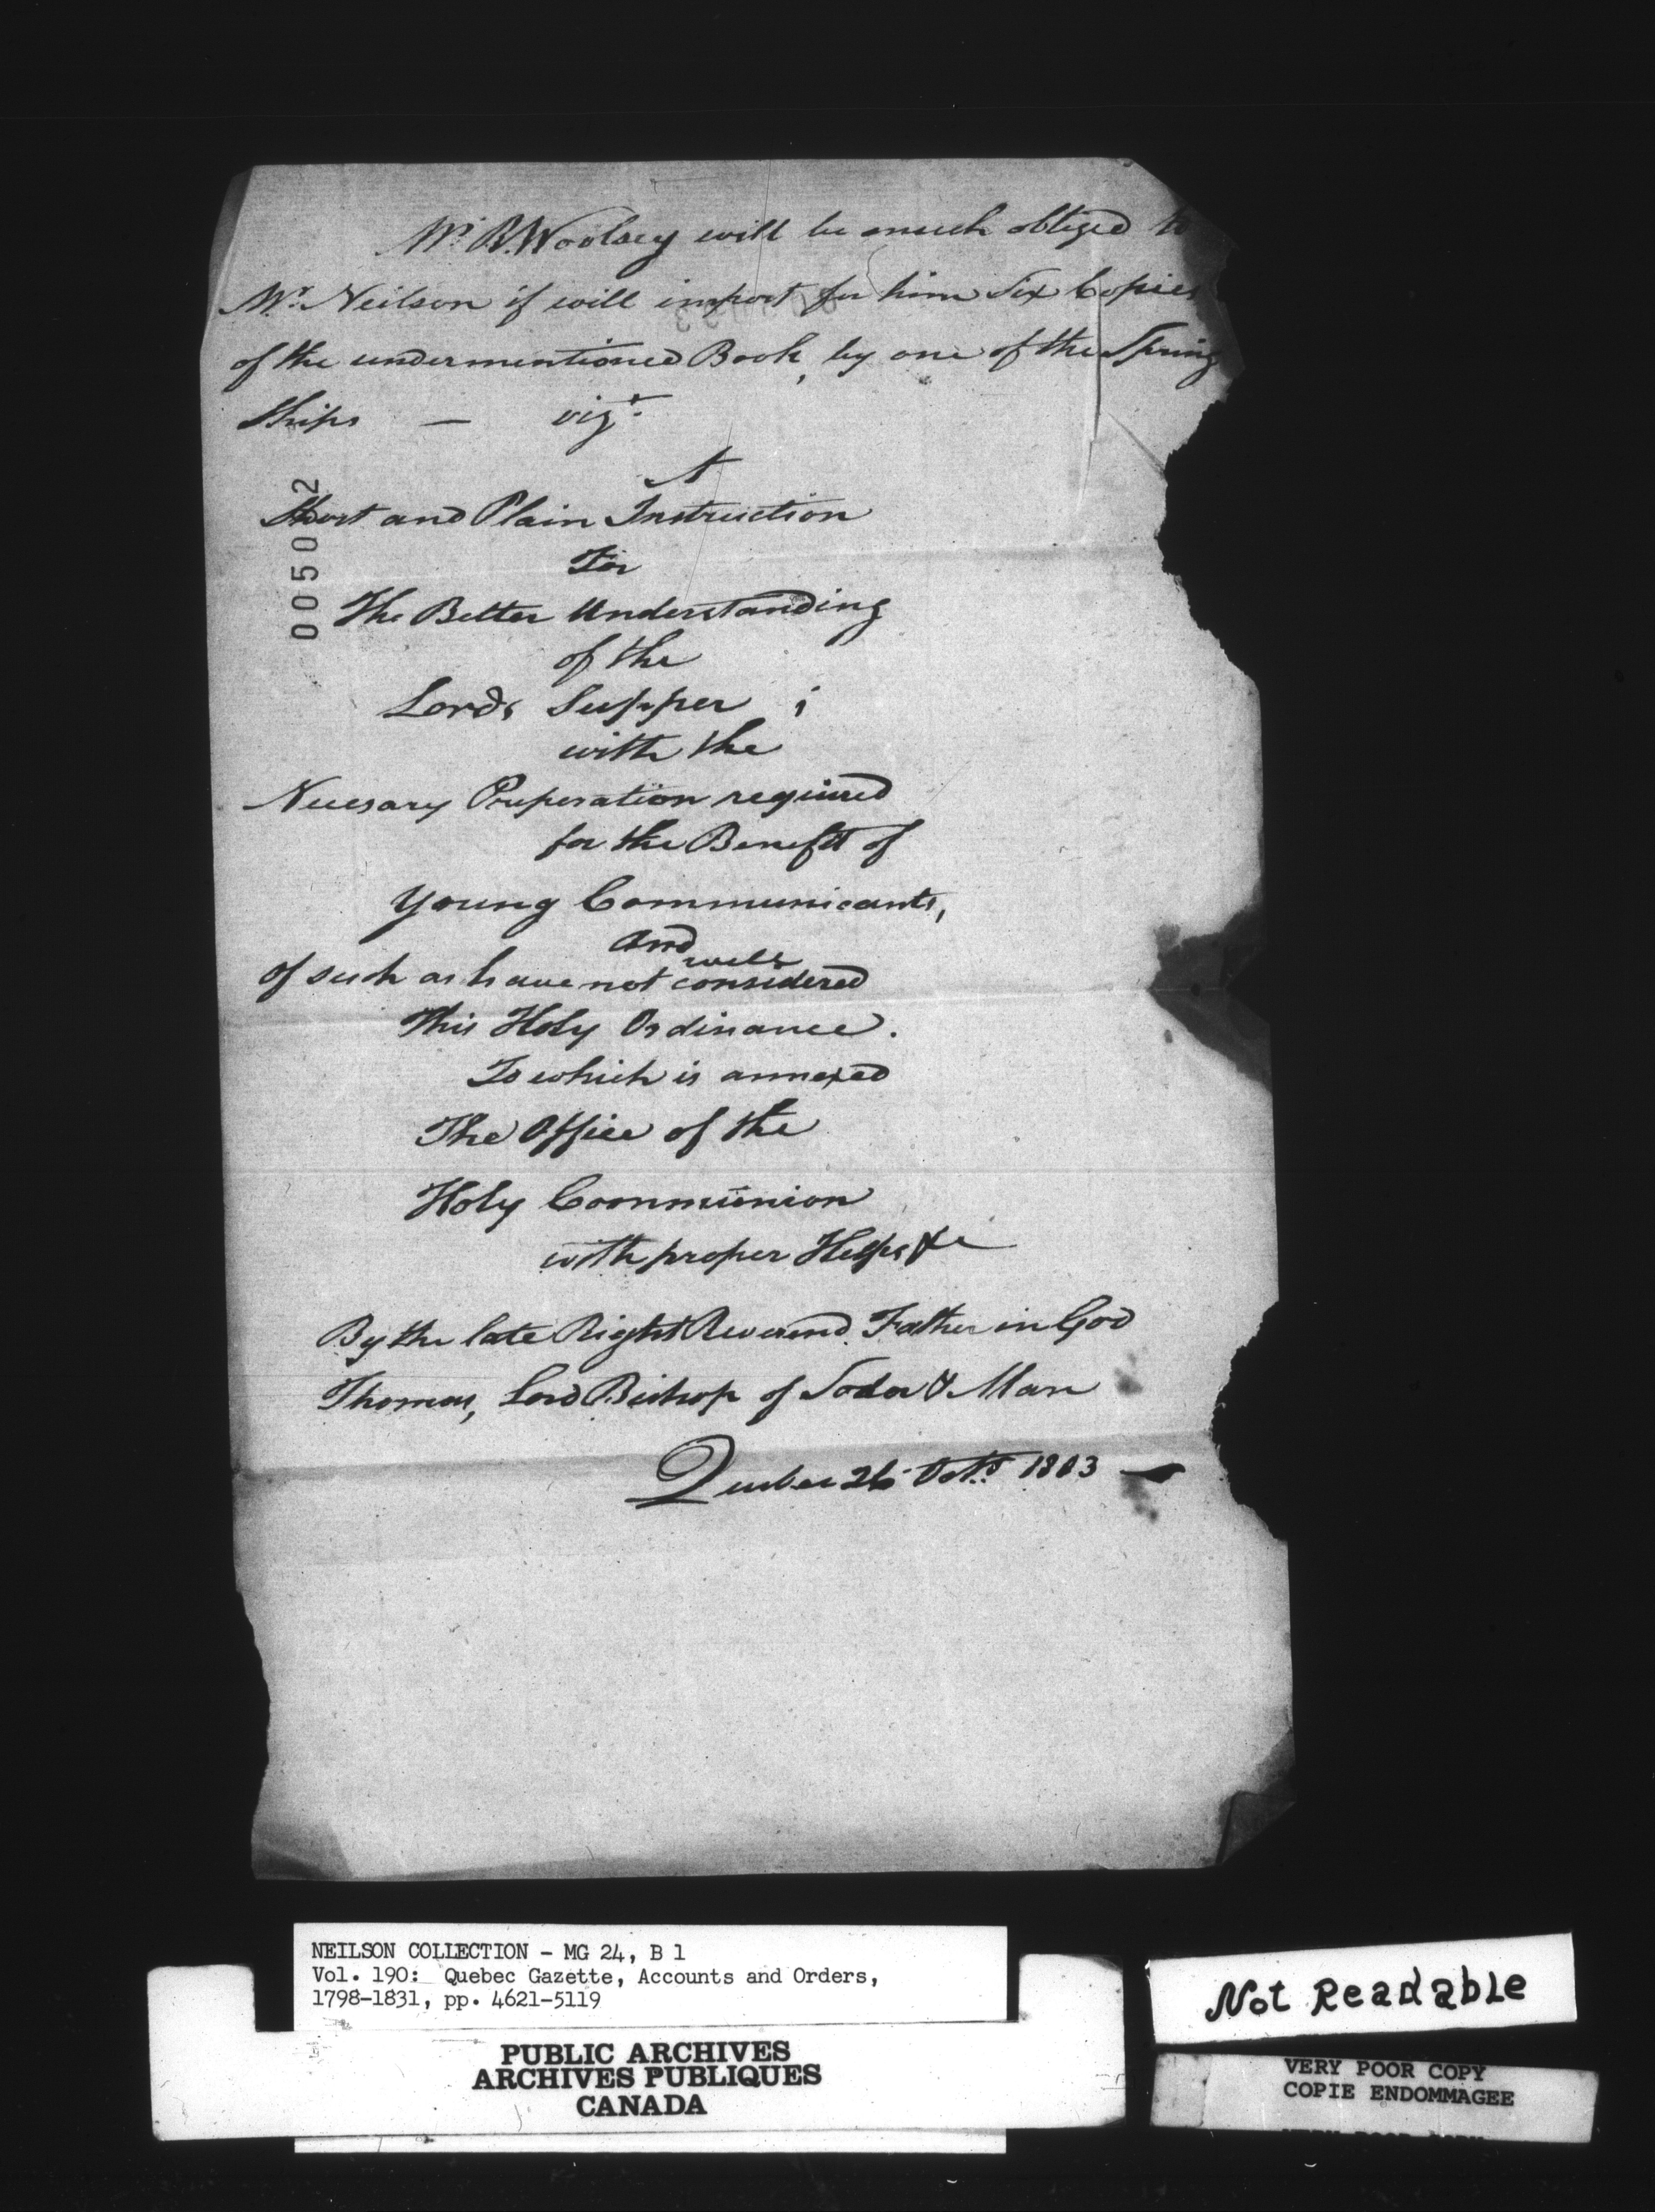 Mr. B. Woolsey will be much obliged to
Mr. Neilson if will import for him Six Copies
of the undermentioned Book, by one of the Spring
Ships — vizt.
A
Short and Plain Instruction
For
The Better Understanding
of the
Lords Supper ;
with the
Necesary Preperation required
for the Benefit of
Young Communicants,
And
of such as have not well considered
This Holy Ordinance.
To which is annexed
The Office of the
Holy Communion
with proper Helps &c
By the late Right Reverend Father in God
Thomas, Lord Bishop of Sodor & Man
Quebec 26 Octr. 1803
00502
NEILSON COLLECTION - MG 24, B 1
Vol. 190: Quebec Gazette, Accounts and Orders,
1798-1831, pp. 4621-5119
PUBLIC ARCHIVES
ARCHIVES PUBLIQUES
CANADA
Not Readable
VERY POOR COPY
COPIE ENDOMMAGEE